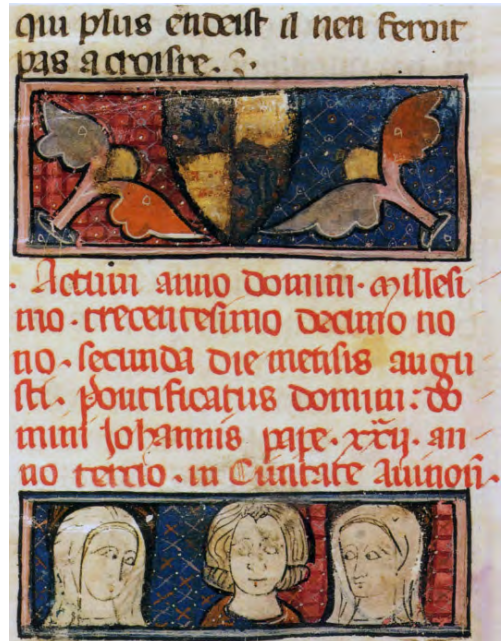 qui plus endeist il nen feroit
pas acroistre.
· Actum anno domini · millesi
mo · trecentesimo decimo no
no · secunda die mensis augu
sti. pontificatus domini : do
mini Johannis pape · xxij · an
no tercio · in Ciuitate Auinoñ ·